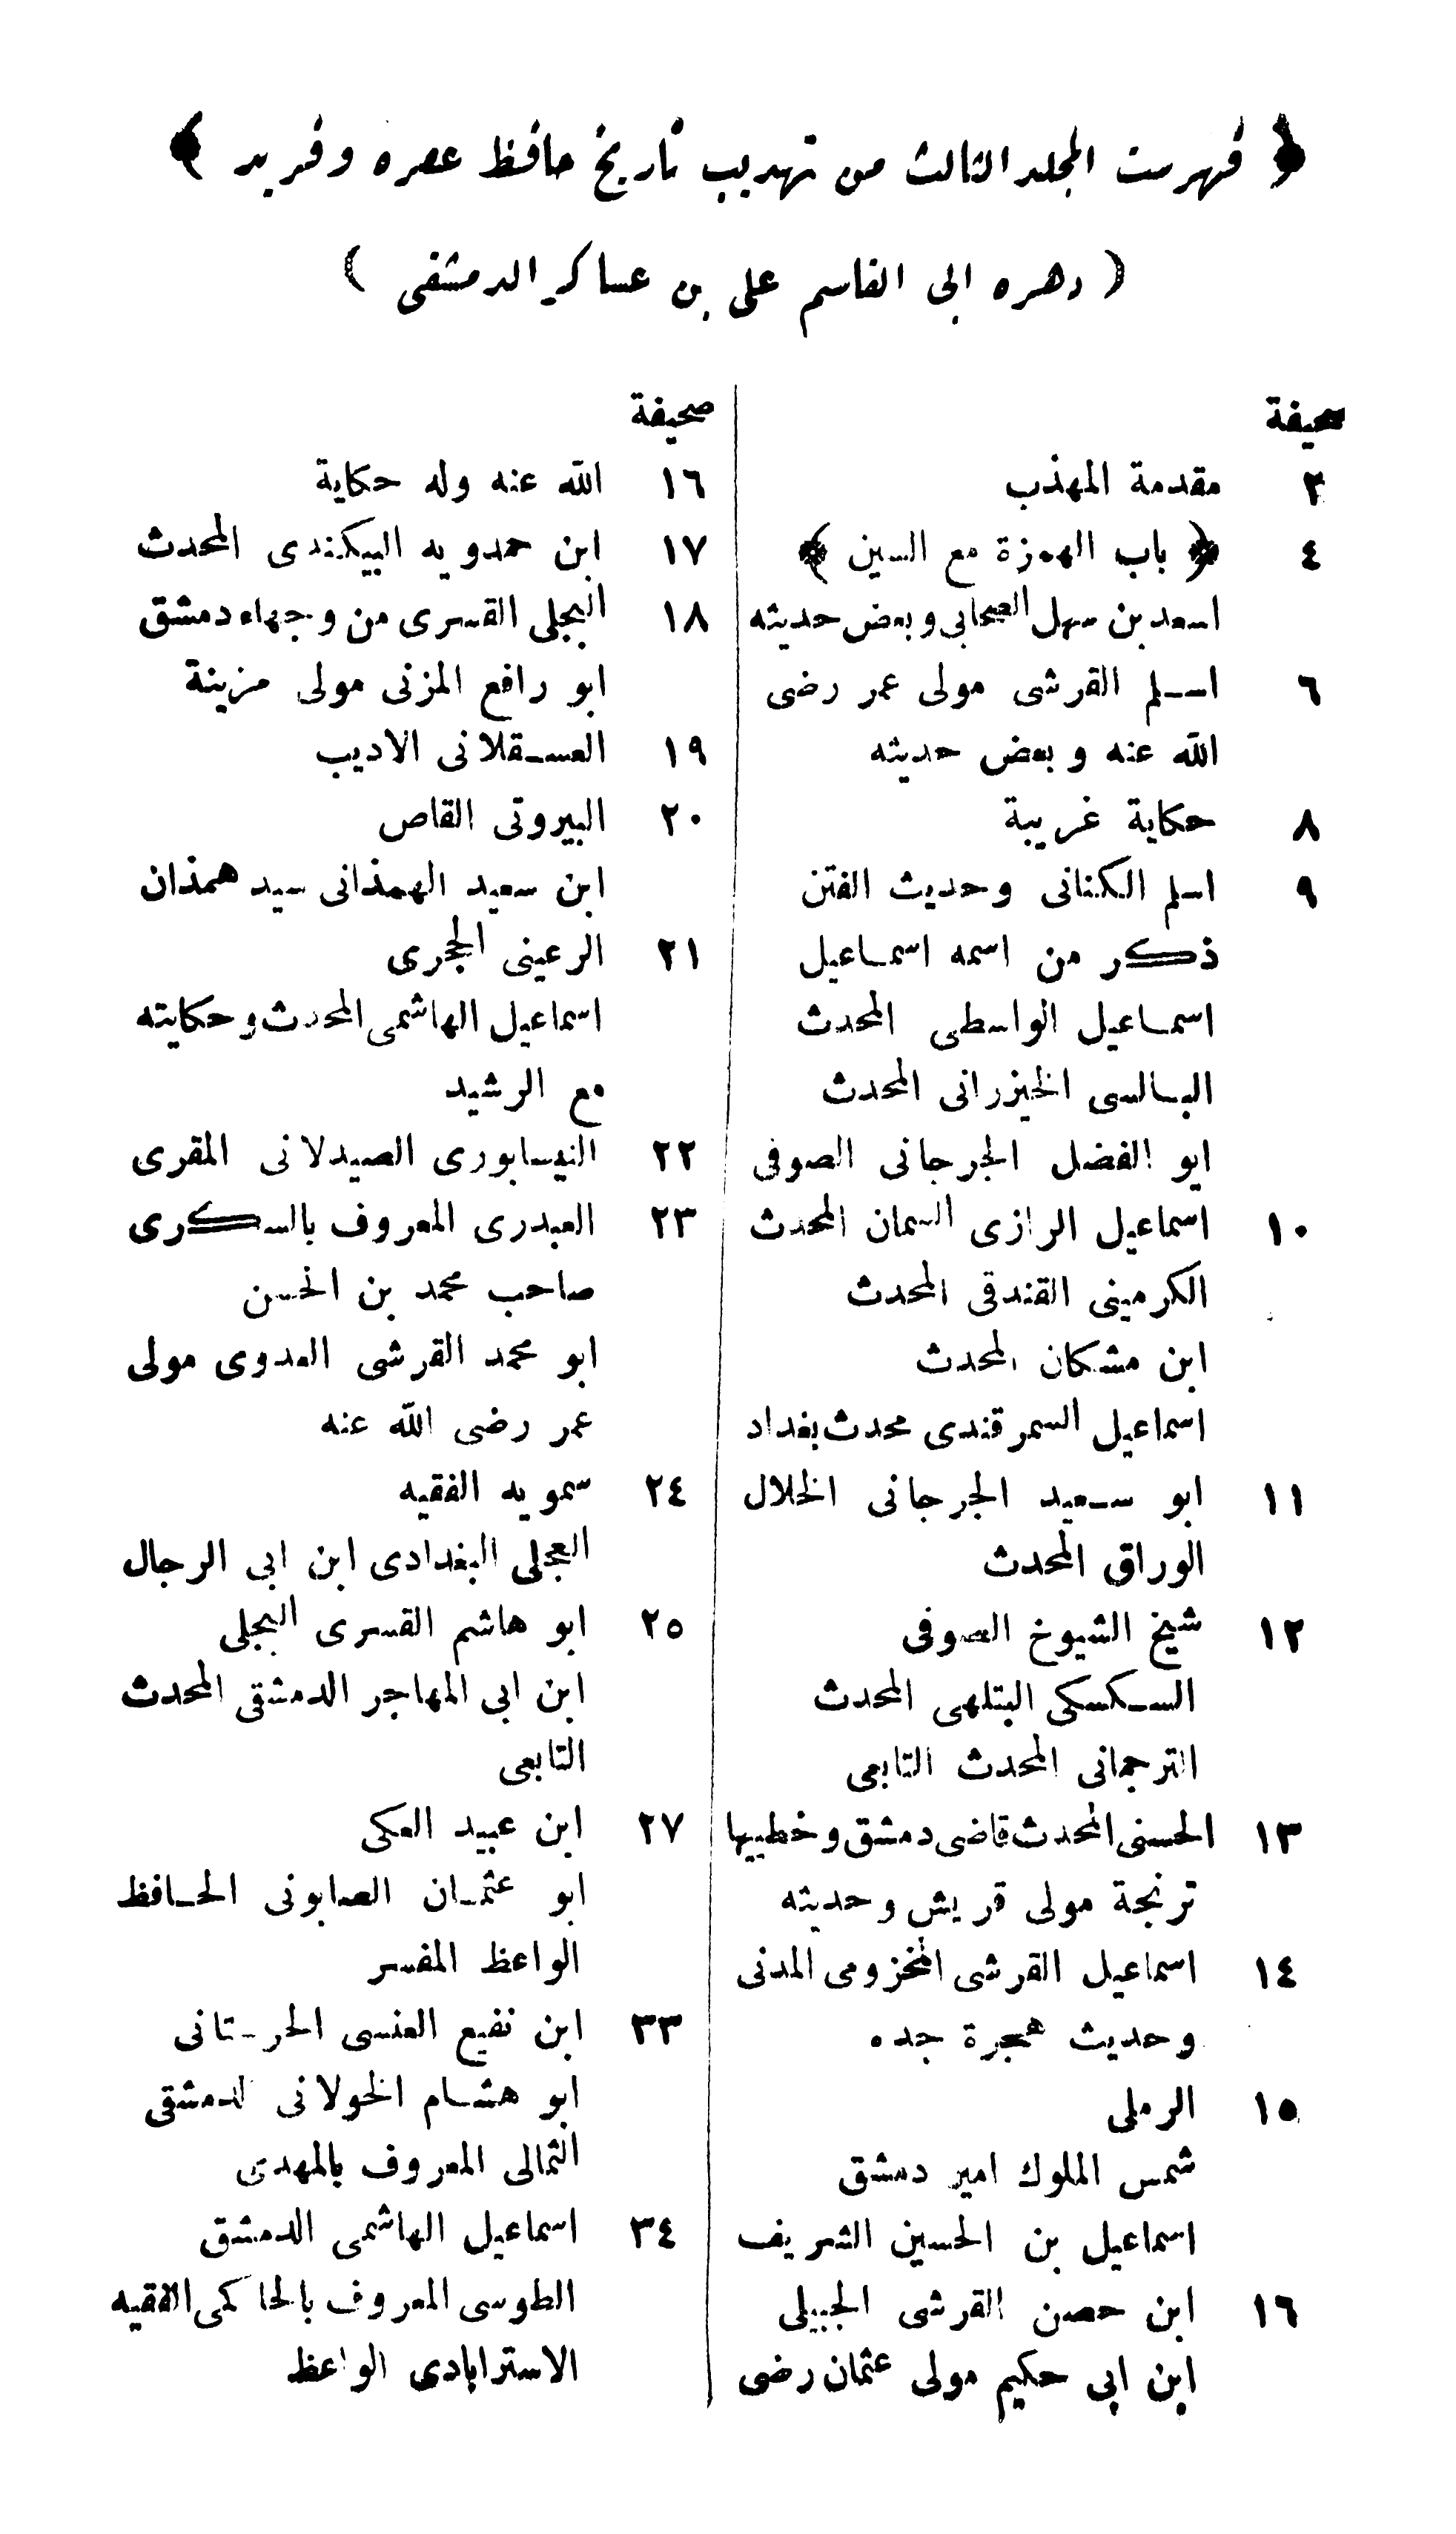 ﴿ فهرست المجلد الثالث من تهذيب تاريخ حافظ عصره وفريد ﴾
( دهره ابى القاسم على بن عساكر الدمشقى )
صحيفة
٢ مقدمة المهذب
٤ ﴿ باب الهمزة مع السين ﴾
اسعد بن سهل الصحابى وبعض حديثه
٦ اسلم القرشى مولى عمر رضى
الله عنه وبعض حديثه
٨ حكاية غريبة
٩ اسلم الكنانى وحديث الفتن
ذكر من اسمه اسماعيل
اسماعيل الواسطى المحدث
البالسى الخيزرانى المحدث
ابو الفضل الجرجانى الصوفى
١٠ اسماعيل الرازى السمان المحدث
الكرمينى القندقى المحدث
ابن مشكان المحدث
اسماعيل السمرقندى محدث بغداد
١١ ابو سعيد الجرجانى الخلال
الوراق المحدث
١٢ شيخ الشيوخ الصوفى
السكسكى البتلهى المحدث
الترجمانى المحدث التابعى
١٣ الحسنى المحدث قاضى دمشق وخطيبها
ترنجة مولى قريش وحديثه
١٤ اسماعيل القرشى المخزومى المدنى
وحديث هجرة جده
١٥ الرملى
شمس الملوك امير دمشق
اسماعيل بن الحسين الشريف
١٦ ابن حصن القرشى الجبيلى
ابن ابى حكيم مولى عثمان رضى
صحيفة
١٦ الله عنه وله حكاية
١٧ ابن حمدويه البيكندى المحدث
١٨ البجلى القسرى من وجهاء دمشق
ابو رافع المزنى مولى مزينة
١٩ العسقلانى الاديب
٢٠ البيروتى القاص
ابن سعيد الهمذانى سيد همذان
٢١ الرعينى الحجرى
اسماعيل الهاشمى المحدث وحكايته
مع الرشيد
٢٢ النيسابورى الصيدلانى المقرى
٢٣ العبدرى المعروف بالسكرى
صاحب محمد بن الحسن
ابو محمد القرشى العدوى مولى
عمر رضى الله عنه
٢٤ سمويه الفقيه
العجلى البغدادى ابن ابى الرجال
٢٥ ابو هاشم القسرى البجلى
ابن ابى المهاجر الدمشقى المحدث
التابعى
٢٧ ابن عبيد العكى
ابو عثمان الصابونى الحافظ
الواعظ المفسر
٣٣ ابن نفيع العنسى الحرستانى
ابو هشام الخولانى الدمشقى
الثمالى المعروف بالمهدى
٣٤ اسماعيل الهاشمى الدمشقى
الطوسى المعروف بالحاكمى الفقيه
الاسترابادى الواعظ